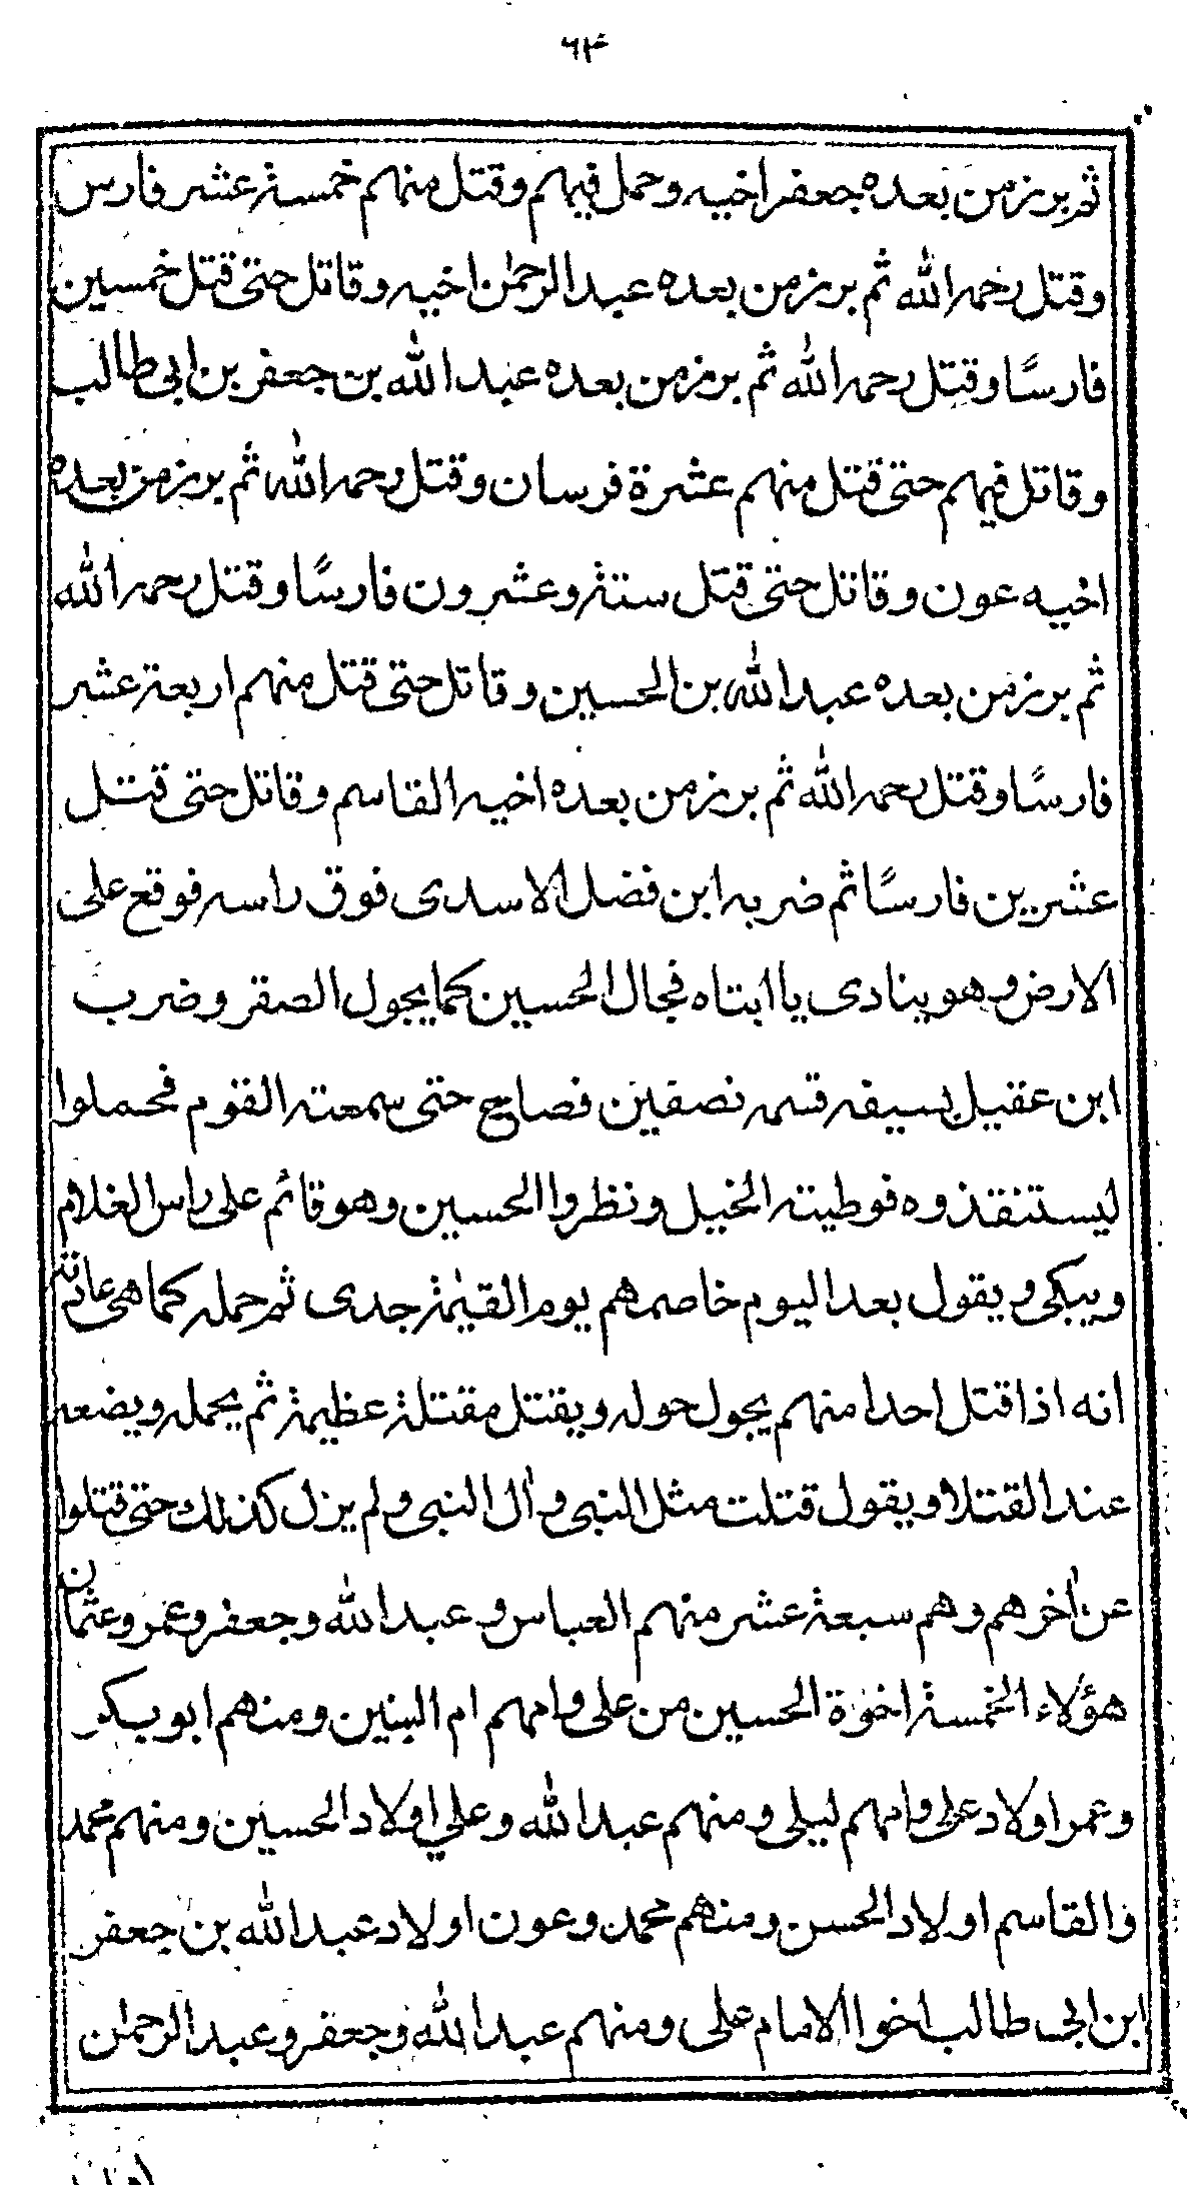 ٦٤
ثم برز من بعده جعفر اخيه وحمل فيهم وقتل منهم خمسة عشر فارس
وقتل رحمه الله ثم برز من بعده عبد الرحمٰن اخيه وقاتل حتى قتل خمسين
فارسًا وقتل رحمه الله ثم برز من بعده عبد الله بن جعفر بن ابى طالب
وقاتل فيهم حتى قتل منهم عشرة فرسان وقتل رحمه الله ثم برز من بعده
اخيه عون وقاتل حتى قتل ستة وعشرون فارسًا وقتل رحمه الله
ثم برز من بعده عبد الله بن الحسين وقاتل حتى قتل منهم اربعة عشر
فارسًا وقتل رحمه الله ثم برز من بعده اخيه القاسم وقاتل حتى قتل
عشرين فارسًا ثم ضربه ابن فضل الاسدى فوق راسه فوقع على
الارض وهو ينادى يا ابتاه فجال الحسين كما يجول الصقر وضرب
ابن عقيل بسيفه قسمه نصفين فصاح حتى سمعته القوم فحملوا
ليستنقذوه فوطيته الخيل ونظروا الحسين وهو قائم على راس الغلام
ويبكى ويقول بعد اليوم خاصمهم يوم القيٰمة جدى ثم حمله كما هى عادته
انه اذا قتل احدا منهم يجول حوله ويقتل مقتلة عظيمة ثم يحمله ويضعه
عند القتلا ويقول قتلت مثل النبى وآل النبى ولم يزل كذلك حتى قتلوا
عن آخرهم وهم سبعة عشر منهم العباس وعبد الله وجعفر وعمر وعثمان
هؤلاء الخمسة اخوة الحسين من على وامهم ام البنين ومنهم ابو بكر
وعمر اولاد على وامهم ليلى ومنهم عبد الله وعلي اولاد الحسين ومنهم محمد
والقاسم اولاد الحسن ومنهم محمد وعون اولاد عبد الله بن جعفر
ابن ابى طالب اخوا الامام على ومنهم عبد الله وجعفر وعبد الرحمٰن